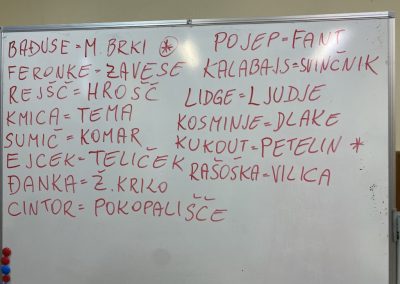 BADUSE = M. BRKI *
FERONKE = ZAVESE
REJŠČ = HROŠČ
KMICA = TEMA
SUMIČ = KOMAR
EJCEK = TELIČEK
ĐANKA = Ž. KRILO
CINTOR = POKOPALIŠČE
POJEP = FANT
KALABAJS = SVINČNIK
LIDGE = LJUDJE
KOSMINJE = DLAKE
KUKOUT = PETELIN *
RAŠOŠKA = VILICA